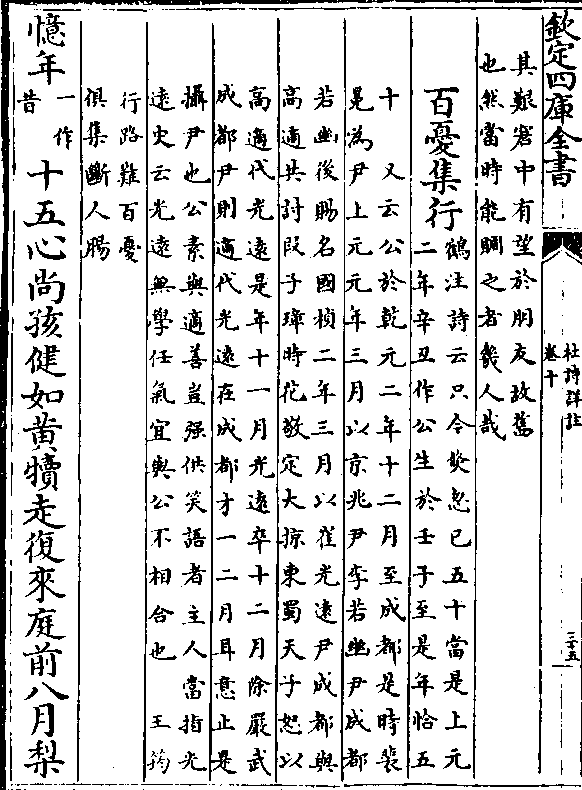 欽定四庫全書
杜詩詳註
卷十
其艱窘中有望於朋友故舊
也然當時能賙之者幾人哉
百憂集行
鶴注詩云只今倐忽已五十當是上元
二年辛丑作公生於壬子至是年恰五
十 又云公於乾元二年十二月至成都是時裴
冕為尹上元元年三月以京兆尹李若幽尹成都
若幽後賜名國楨二年三月以崔光遠尹成都與
高適共討段子璋時花敬定大掠東蜀天子怒以
高適代光遠是年十一月光遠卒十二月除嚴武
成都尹則適代光遠在成都才一二月耳意止是
攝尹也公素與適善豈强供笑語者主人當指光
遠史云光遠無學任氣宜與公不相合也 王筠
行路難百憂
俱集斷人腸
憶年一作昔十五心尚孩健如黄犢走復來庭前八月梨